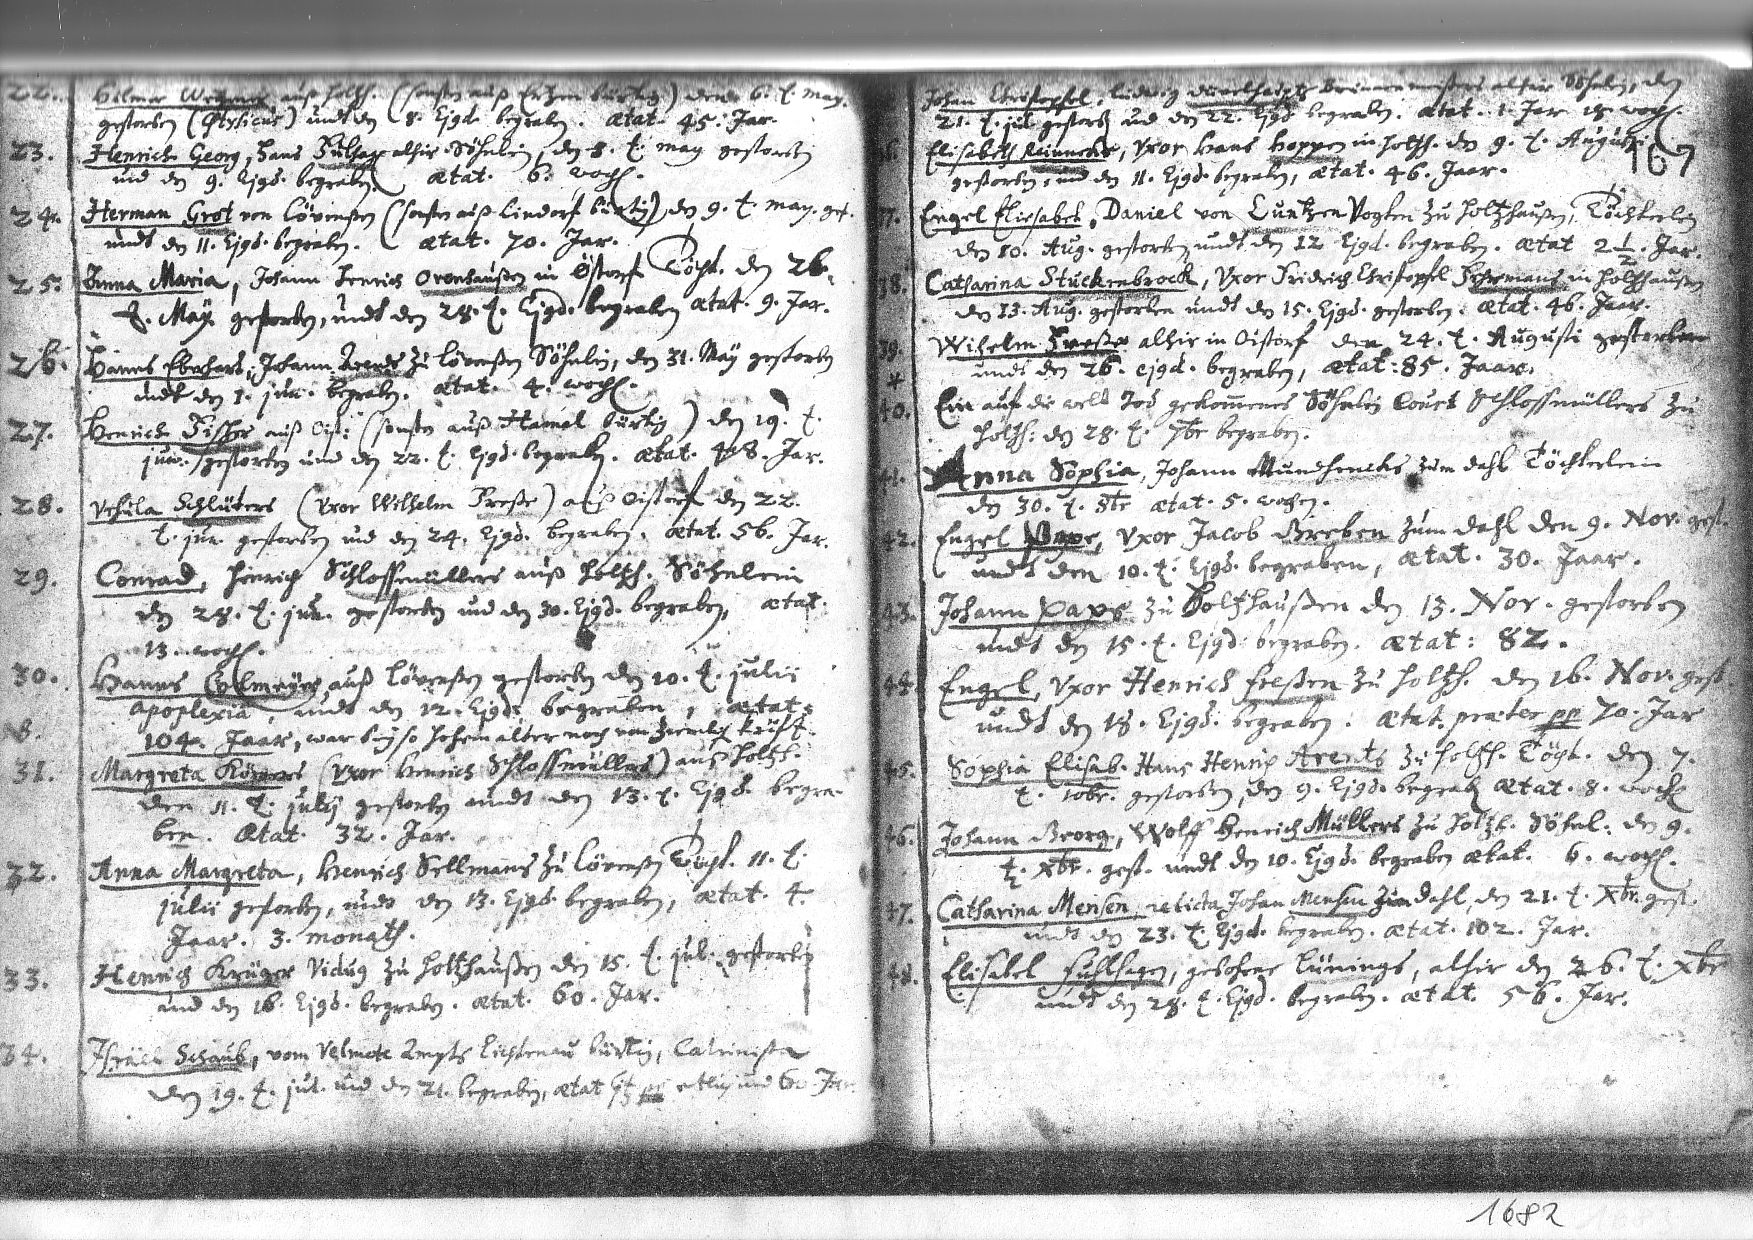 22. Hilmar Wegener auß Holtzh. (sonsten auß Ertzen bürtig) den 6. t. May.
gestorben (Phtysicus) undt den 8. Ejgd. begraben. Ætat. 45. Jar.
23. Henrich Georg, Hans alhir Söhnlein, den 8. t. may gestorben
und den 9. Ejgd. begraben. Ætat. 6. woch.
24. Herman Grot von Lövenßen (sonsten auß Lindorf bürtig) den 9. t. may. gest.
undt den 11. Ejgd. begraben. Ætat. 70. Jar.
25. Anna Maria, Johann Henrich Ovenhaußen in Östorf Töcht. den 26.
t. May gestorben, undt den 28. t. Ejgd. begraben ætat. 9. Jar.
26. Hanns Eberhart, Johann Arends zu Lövenßen Söhnlein, den 31. May gestorben
undt den 1. jun. begraben. ætat. 4. woch.
27. Henrich Fischer auß Oist: (sonsten auß Hamel bürtig) den 19. t.
jun. gestorben und den 22. t. Ejgd. begraben. ætat. 48. Jar.
28. Schlüters (Vxor Wilhelm Freße) auß Oistorf den 22.
t. jun. gestorben und den 24. Ejgd. begraben. ætat. 56. Jar.
29. Conrad, Hinrich Schlossmüllers auß Holtzh. Söhnlein
den 28. t. jun. gestorben und den 30. Ejgd. begraben, ætat.
13. woch.
30. Hanns auß Lövenßen gestorben den 10. t. julii
apoplexia, undt den 12. Ejgd. begraben, ætat.
NB. 104. Jaar, war bey so hohem alter noch von zimlich kräft.
31. Margreta Körners (Vxor Henrich Schlossmüllers) auß Holtzh.
den 11. t. julij gestorben undt den 13. t. Ejgd. begra-
ben. Ætat. 32. Jar.
32. Anna Margreta, Henrich Sellmans zu Lövenßen Töcht. 11. t.
julii gestorben, undt den 13. Ejgd. begraben, ætat. 4.
Jaar. 3. monath.
33. Henrich Krüger Viduus zu Holtzhaußen den 15. t. jul. gestorben
und den 16. Ejgd. begraben. ætat. 60. Jar.
34. Schaub, vom Velmete Ampts Lichtenau bürtig, Calvinista
den 19. t. jul. und den 21. begraben, ætat etlich und 60. Jar.
Johan Christophel, Ludwig Brunnenmeisters alhir Söhnlein, den
21. t. jul. gestorb. und den 22. Ejgd. begraben. ætat. 1. Jar 18. woch.
167
Elisabeth Reinneke, Vxor Hans Hoppen in Holtzh. den 9. t. Augusti
gestorben, und den 11. Ejgd. begraben, ætat. 46. Jaar.
37. Engel Eliesabet, Daniel von Luntzen Vogten zu Holtzhaußen, Töchterlein
den 10. Aug. gestorben undt den 12 Ejgd. begraben. ætat 2 1/2. Jar.
38. Catharina Stuckenbrock, Vxor Fridrich Christophel in Holtzhaußen
den 13. Aug. gestorben undt den 15. Ejgd. gestorben. ætat. 46. Jaar.
39. Wilhelm Freße alhir in Oistorf den 24. t. Augusti gestorben
undt den 26. ejgd. begraben, ætat: 85. Jaar.
*
40. Ein auf die welt Tod gekommenes Söhnlein Court Schlossmüllers zu
Holtzh: den 28. t. 7br begraben.
41. Anna Sophia, Johann Mundhencks zum Dahl Töchterlein
den 30. t. 8br ætat. 5. wochen.
42. Engel Pape, Vxor Jacob Greben zum Dahl den 9. Nov. gest.
undt den 10. t. Ejgd. begraben, ætat. 30. Jaar.
43. Johann Pape zu Holtzhaußen den 13. Nov. gestorben
undt den 15. t. Ejgd. begraben. ætat: 82.
44. Engel, Vxor Henrich Freßen zu Holtzh. den 16. Nov. gest.
undt den 18. Ejgd. begraben. ætat. præter pp 70. Jar
45. Sophia Elisab. Hans Henrich Arents zu Holtzh. Töcht. den 7.
t. 10br. gestorben, den 9. Ejgd. begrab. ætat. 8. woch.
46. Johann Georg, Wolff Henrich Müllers zu Holtzh. Söhnl. den 9.
t. Xbr. gest. undt den 10. Ejgd. begraben ætat. 6. woch.
47. Catharina Mensen, relicta Johan Mensen zum Dahl, den 21. t. Xbr. gest.
undt den 23. t. Ejgd. begraben. ætat. 102. Jar.
48. Elisabet Fuhlhagen, gebohrne Lünings, alhir den 26. t. Xbr
undt den 28. t. Ejgd. begraben. ætat. 56. Jar.
1682